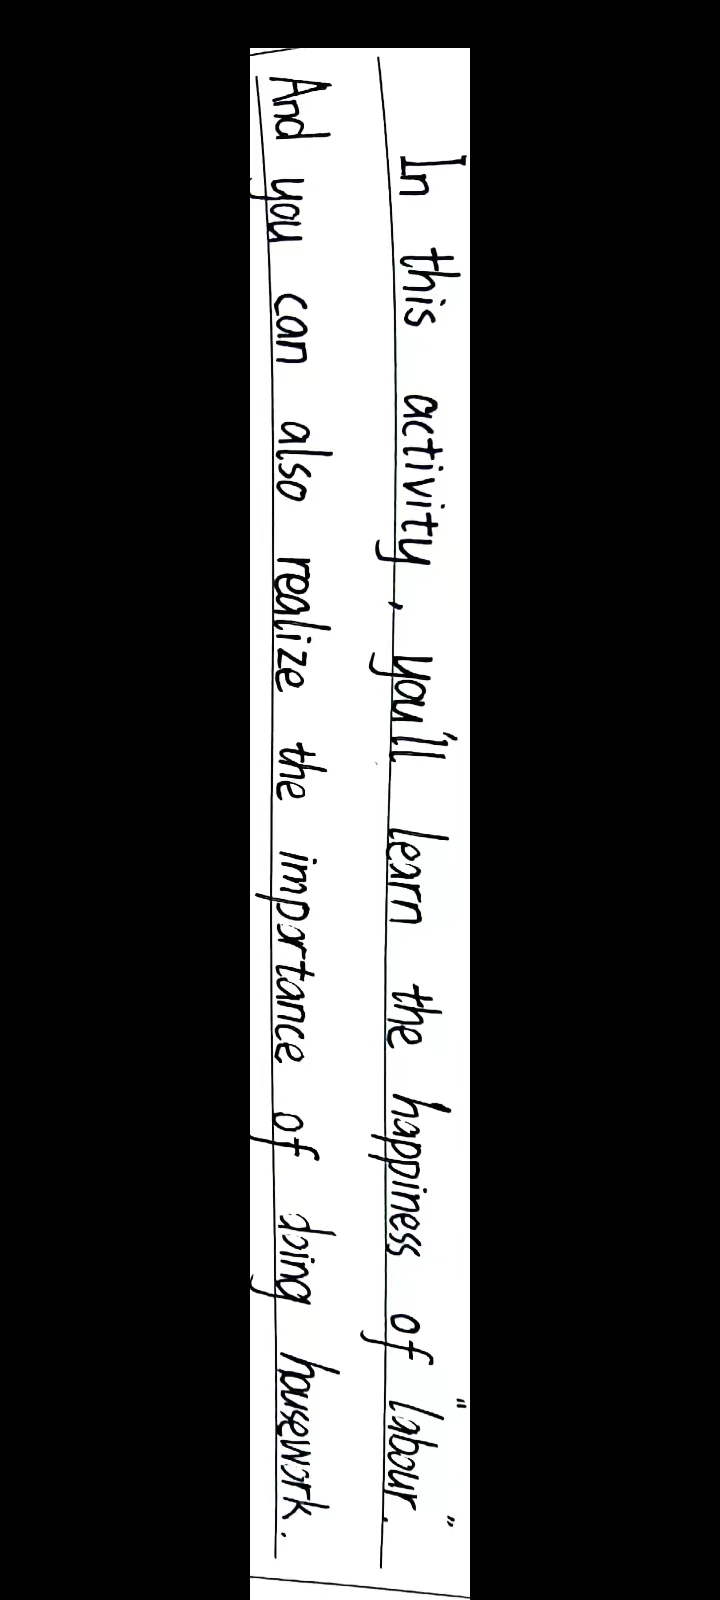 In this activity, you'll learn the happiness of "labour."
And you can also realize the importance of doing housework.